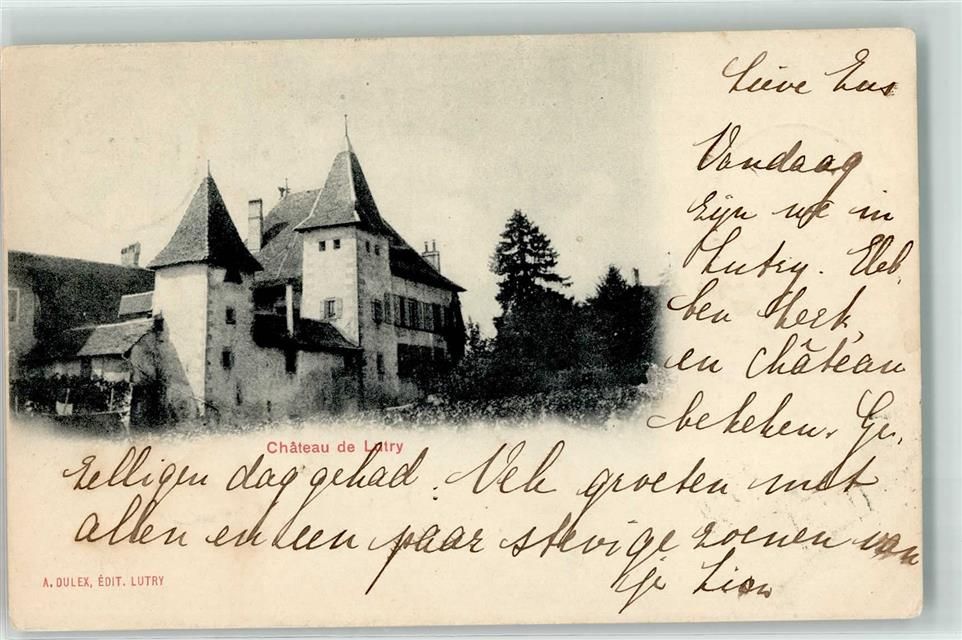 Lieve Eus
Vandaag
zijn we in
Lutry. Heb,
ben kerk,
en château
bekeken. Ge,
zelligen dag gehad. Vele groeten met
allen en een paar stevige zoenen van
je Lien
Château de Lutry
A. DULEX, ÉDIT. LUTRY